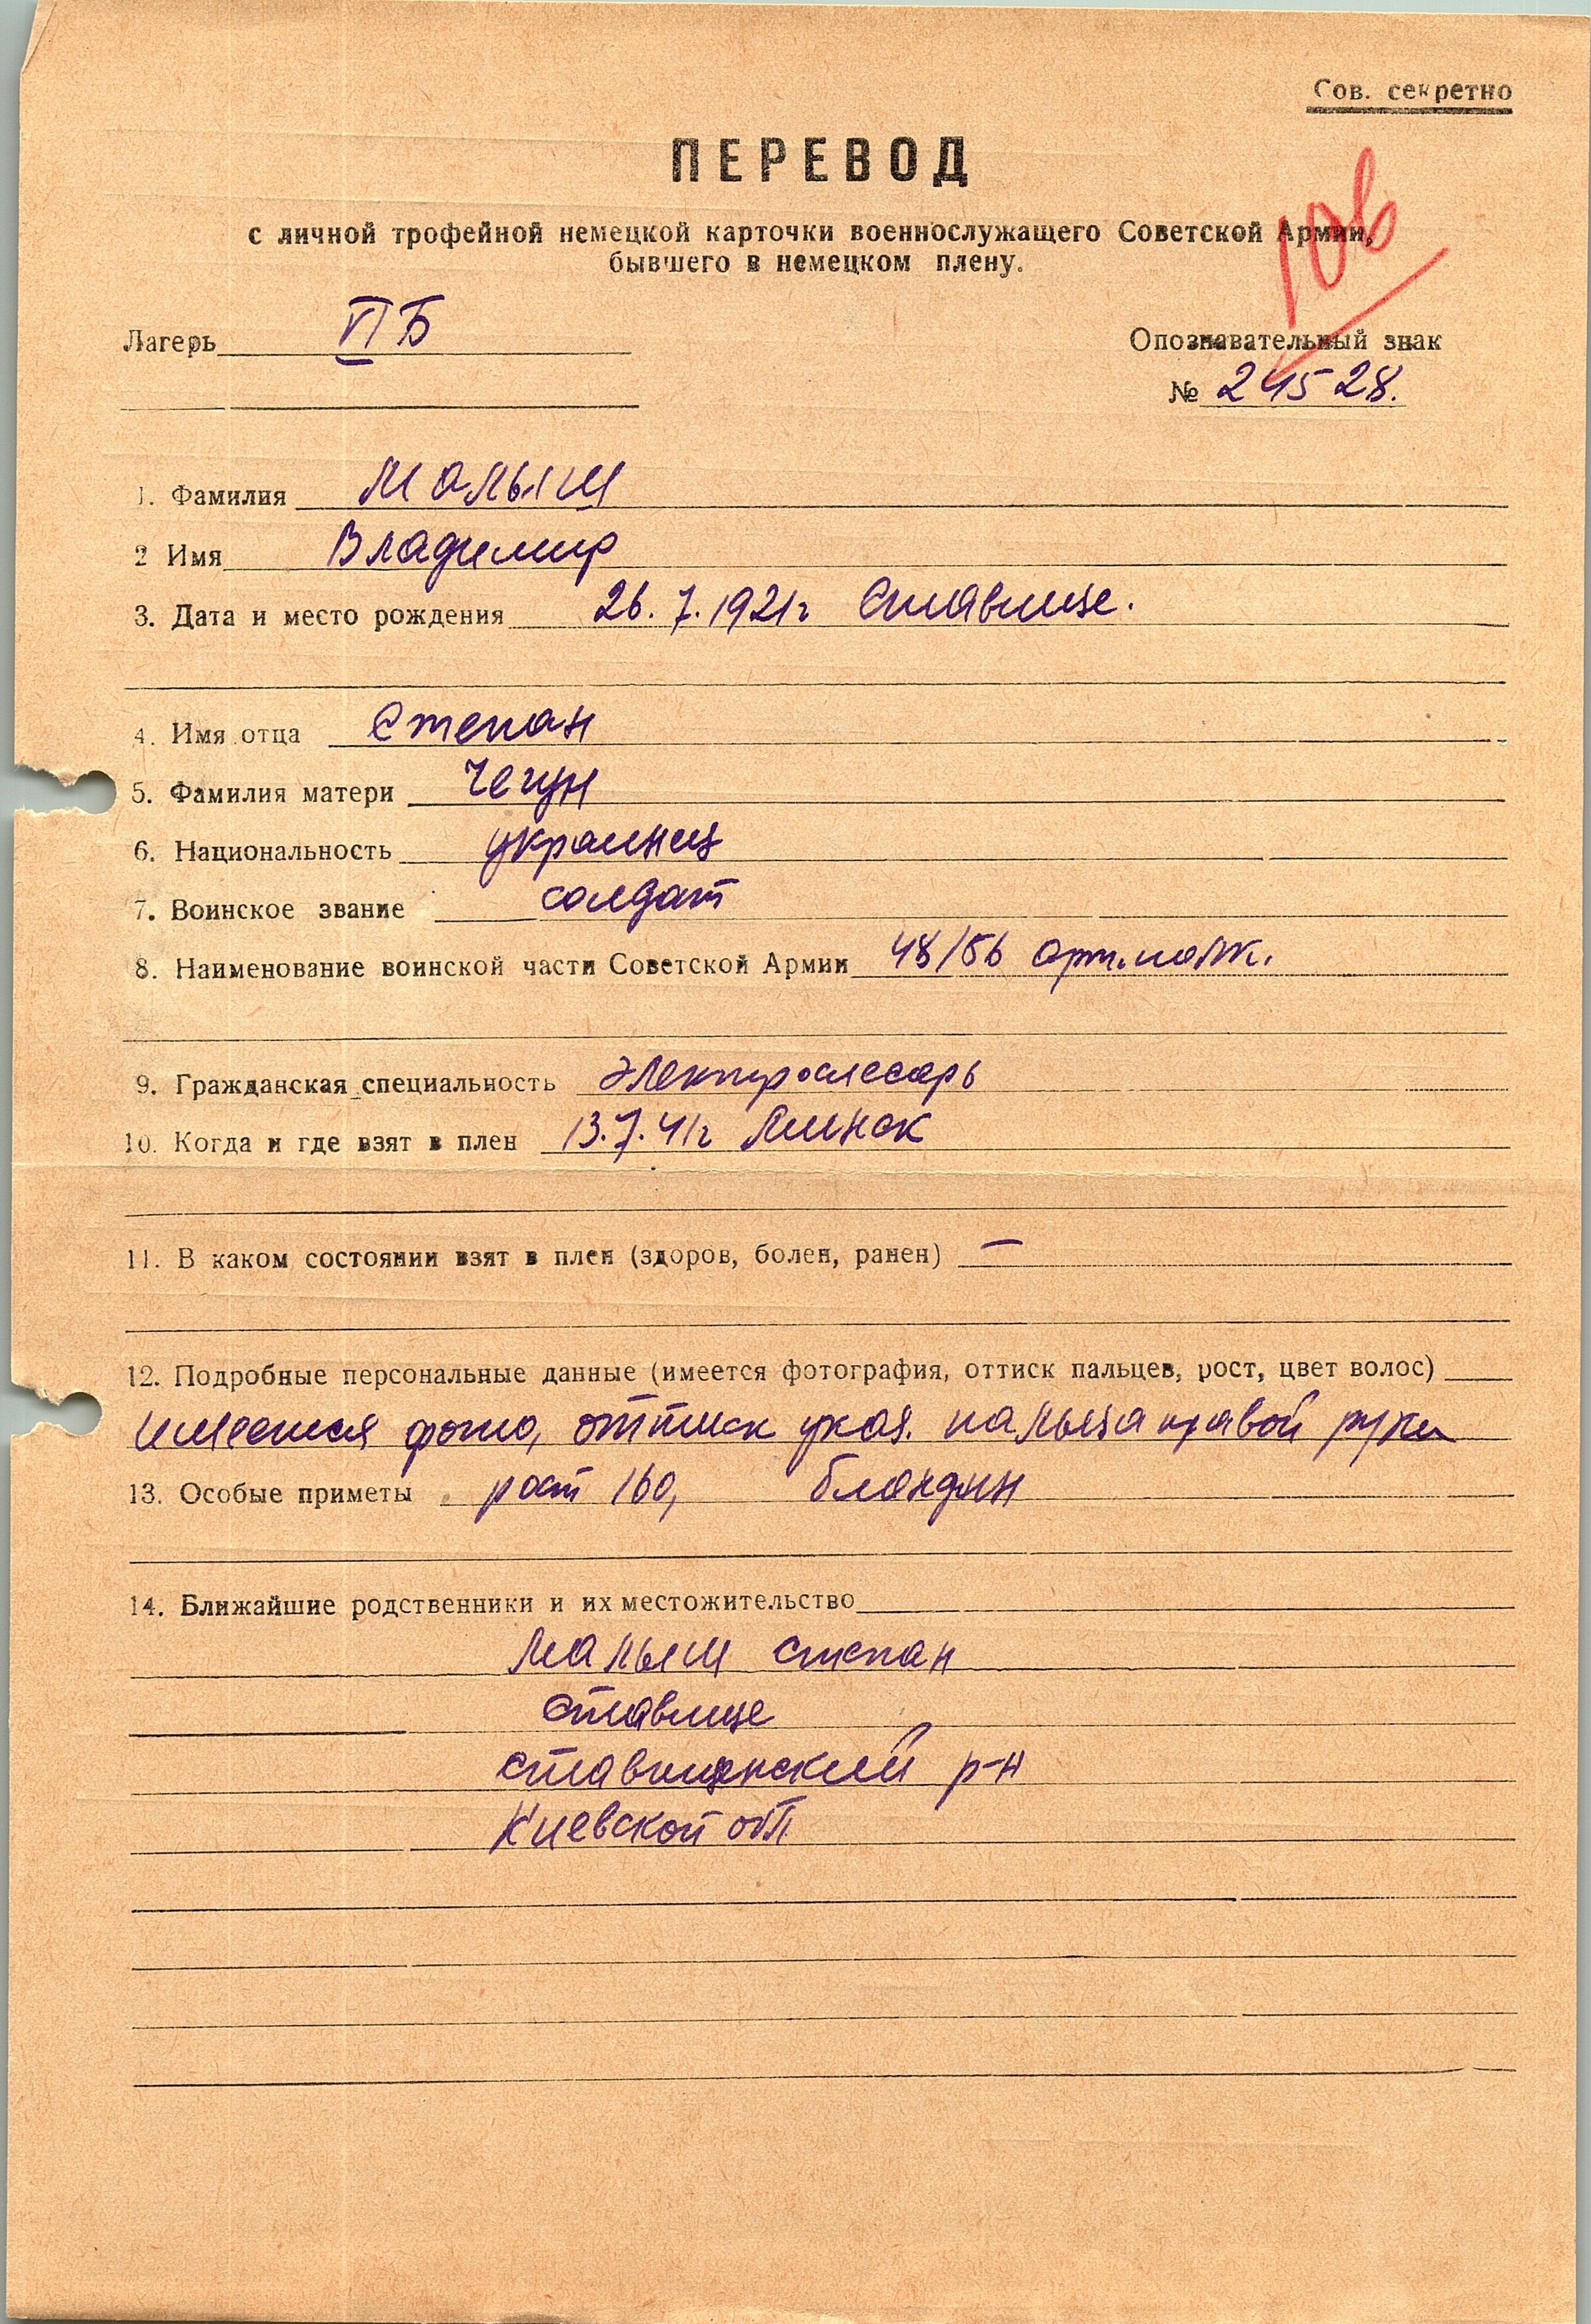 Сов. секретно
ПЕРЕВОД
с личной трофейной немецкой карточки военнослужащего Советской Армии,
бывшего в немецком плену.
106
Лагерь VI Б
Опознавательный знак
№ 24528.
1. Фамилия Малыш
2 Имя Владимир
3. Дата и место рождения 26.7.1921г Ставище.
4. Имя отца Степан
5. Фамилия матери Чегун
6. Национальность украинец
7. Воинское звание солдат
8. Наименование воинской части Советской Армии 48/56 арт.полк.
9. Гражданская специальность электрослесарь
10. Когда и где взят в плен 13.7.41г Минск
11. В каком состоянии взят в плен (здоров, болен, ранен) —
12. Подробные персональные данные (имеется фотография, оттиск пальцев, рост, цвет волос)
имеется фото, оттиск указ. пальца правой руки
13. Особые приметы рост 160, блондин
14. Ближайшие родственники и их местожительство
Малыш Степан
Ставище
Ставищенский р-н
Киевской обл.